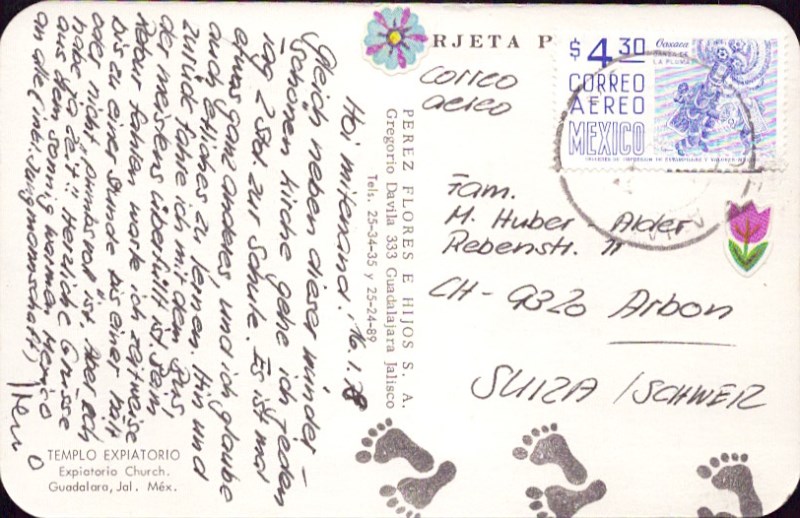 RJETA P
$4.30
Oaxaca
LA PLUMA
CORREO
AEREO
MEXICO
Correo
aereo
Hoi mitenand! 16.1.78
Gleich neben dieser wunder-
schönen Kirche gehe ich jeden
Tag 2 Std. zur Schule. Es ist mal
etwas ganz anderes, und ich glaube
auch etliches zu lernen. Hin und
zurück fahre ich mit dem Bus,
der meistens überfüllt ist. Beim
Retour fahren warte ich zeitweise
bis zu einer Stunde bis einer mal
oder nicht pfumbsvoll ist. Aber ich
habe ja Zeit!! Herzliche Grüsse
aus dem sonnig warmen Mexico
an alle (inkl. Jungmannschaft)
PEREZ FLORES E HIJOS S. A.
Gregorio Davila 333 Guadalajara Jalisco
Tels. 25-34-35 y 25-24-89
Fam.
M. Huber - Alder
Rebenstr. 11
CH-9320 Arbon
SUIZA / SCHWEIZ
TEMPLO EXPIATORIO
Expiatorio Church.
Guadalara, Jal. Méx.